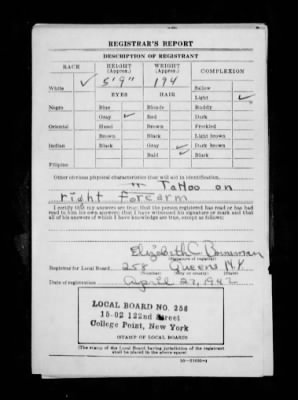 REGISTRAR'S REPORT
DESCRIPTION OF REGISTRANT
RACE HEIGHT (Approx.) WEIGHT (Approx.) COMPLEXION
White ✓ 5'9" 194 Sallow
EYES HAIR Light ✓
Negro Blue Blonde Ruddy
Gray ✓ Red Dark
Oriental Hazel Brown Freckled
Brown Black Light brown
Indian Black Gray ✓ Dark brown
Bald ✓ Black
Filipino
Other obvious physical characteristics that will aid in identification
Tattoo on
right forearm
I certify that my answers are true; that the person registered has read or has had
read to him his own answers; that I have witnessed his signature or mark and that
all of his answers of which I have knowledge are true, except as follows:
Elizabeth C
(Signature of registrar)
Registrar for Local Board 258 Queens N.Y.
(Number) (City or county) (State)
Date of registration April 27, 1942
LOCAL BOARD NO. 258
15-02 122nd Street
College Point, New York
(STAMP OF LOCAL BOARD)
(The stamp of the Local Board having jurisdiction of the registrant
shall be placed in the above space)